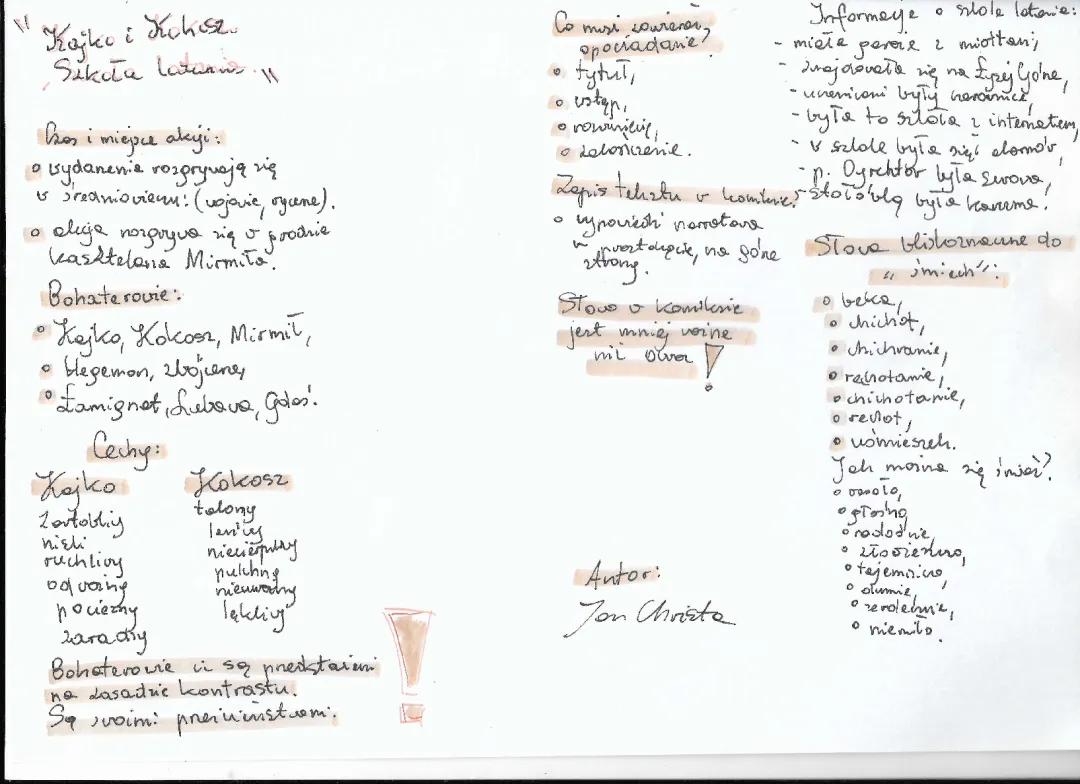 "Kajko i Kokosz.
Szkoła latania."
Czas i miejsce akcji:
wydarzenia rozgrywają się
w średniowieczu: (wojowie, rycerze).
akcja rozgrywa się w grodzie
kasztelana Mirmiła.
Bohaterowie:
Kajko, Kokosz, Mirmił,
Hegemon, zbójcerze,
Łamignat, Lubawa, Gdaś.
Cechy:
Kajko
żartobliwy
niski
ruchliwy
odważny
pocieszny
zaradny
Kokosz
leniwy
niecierpliwy
pulchny
nieuważny
lękliwy
Bohaterowie ci są przedstawieni
na zasadzie kontrastu.
Są swoimi przeciwieństwami.
!
Co musi zawierać
opowiadanie?
tytuł,
wstęp,
rozwinięcie,
zakończenie.
Zapis tekstu w komiksie:
wypowiedź narratora
w prostokącie, na górze
strony.
Słowo w komiksie
jest mniej ważne
niż obraz!
Autor:
Jan Christa
Informacje o szkole latania:
- miała zajęcia z miotłami,
- znajdowała się na Łysej Górze,
- uczennicami były czarownice,
- była to szkoła z internatem,
- w szkole była sieć domów,
- p. Dyrektor była surowa,
- stołówką była karczma.
Słowa bliskoznaczne do
"śmiech":
beka,
chichot,
chichranie,
rechotanie,
chichotanie,
rechot,
uśmieszek.
Jak można się śmiać?
wesoło,
głośno,
radośnie,
złowieszczo,
tajemniczo,
dumnie,
serdecznie,
niemiło.